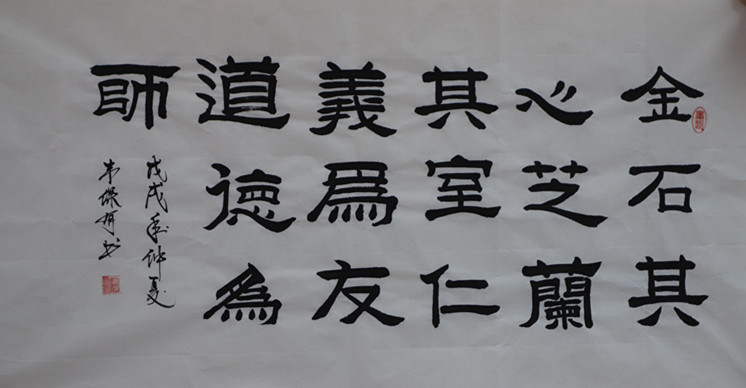 金石其
心芝蘭
其室仁
義爲友
道德為
師
戊戌年仲夏
书